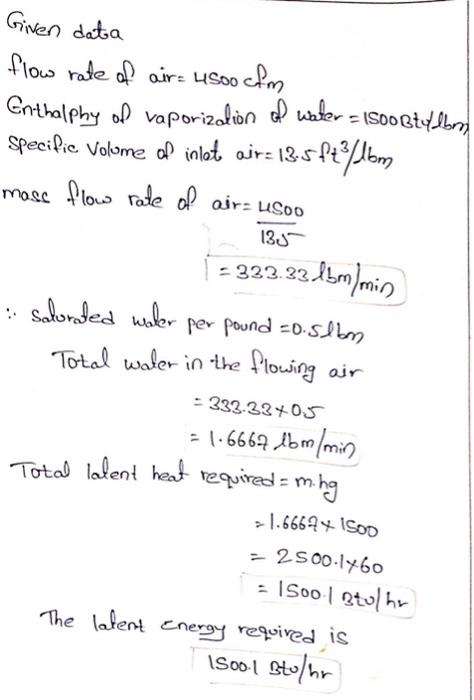 Given data
flow rate of air = 4500 cfm
Enthalphy of vaporization of water = 1500 Btu/lbm
Specific Volume of inlet air = 13.5 ft³/lbm
mass flow rate of air = 4500
135
= 333.33 lbm/min
∴ Saturated water per pound = 0.5 lbm
Total water in the flowing air
= 333.33 × 0.5
= 1.6667 lbm/min
Total latent heat required = m.hg
= 1.6667 × 1500
= 2500.1 × 60
= 1500.1 Btu/hr
The latent energy required is
1500.1 Btu/hr